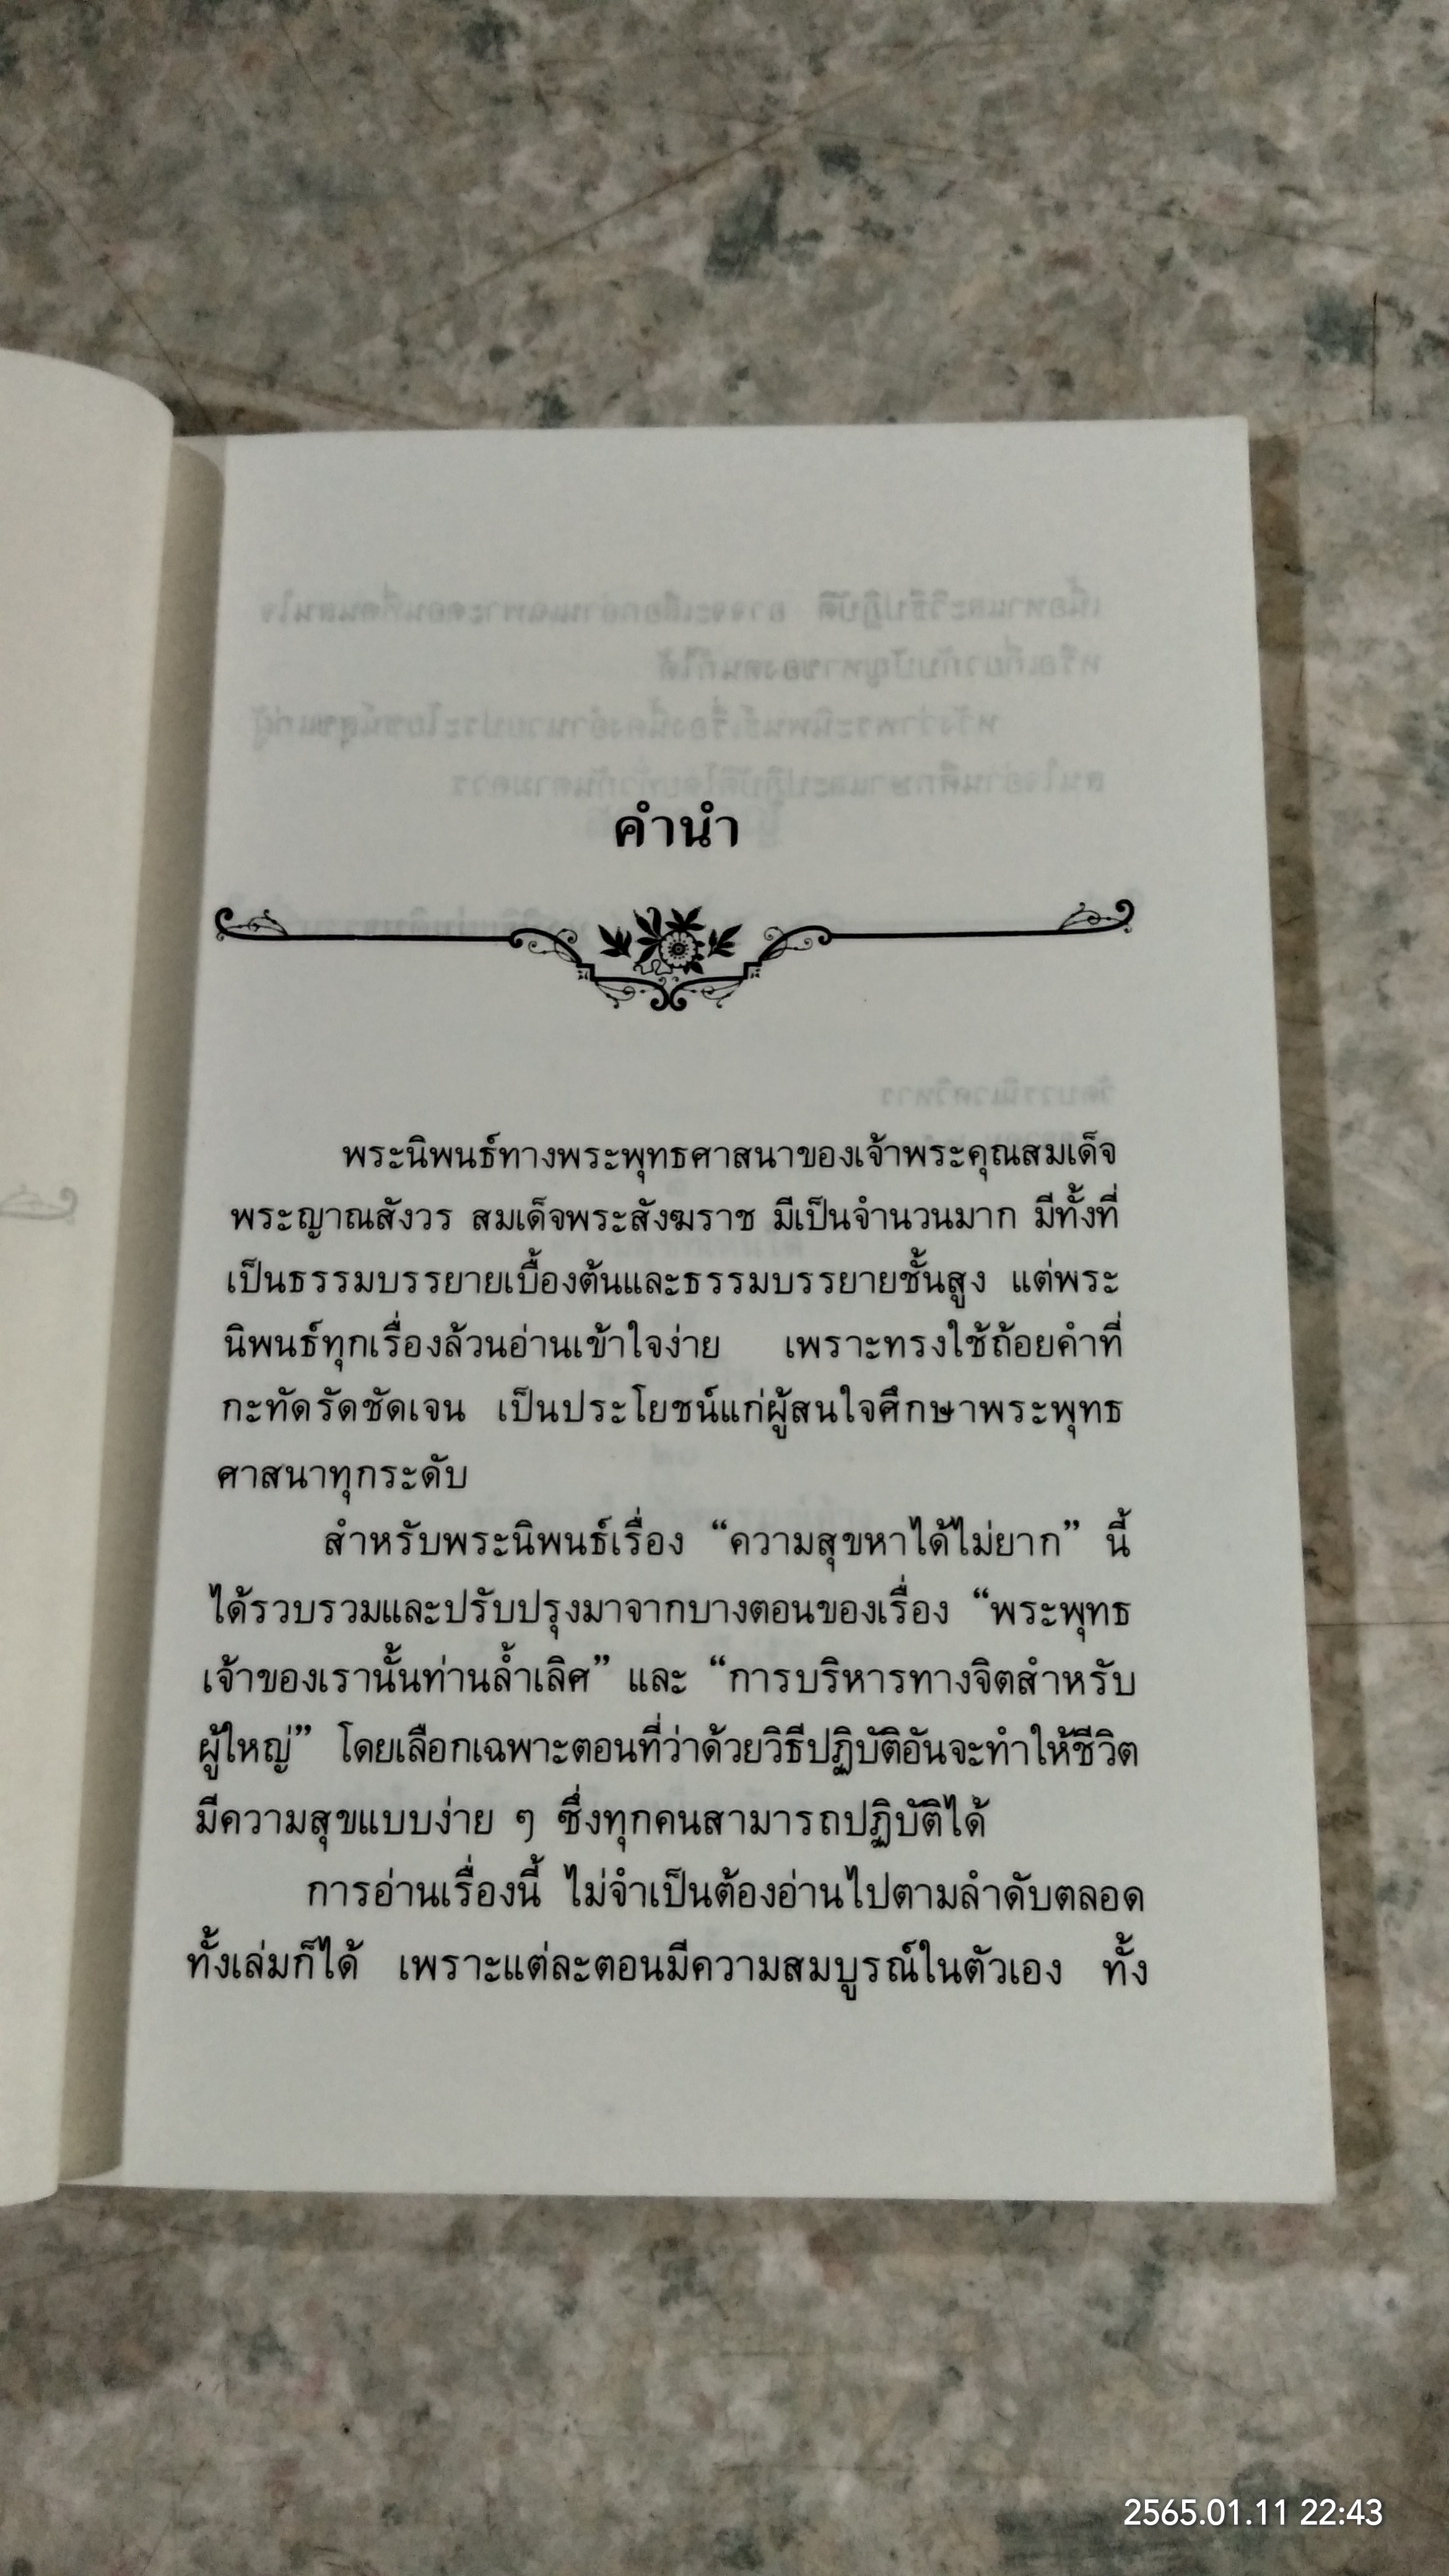 คำนำ
พระนิพนธ์ทางพระพุทธศาสนาของเจ้าพระคุณสมเด็จ
พระญาณสังวร สมเด็จพระสังฆราช มีเป็นจำนวนมาก มีทั้งที่
เป็นธรรมบรรยายเบื้องต้นและธรรมบรรยายชั้นสูง แต่พระ
นิพนธ์ทุกเรื่องล้วนอ่านเข้าใจง่าย เพราะทรงใช้ถ้อยคำที่
กะทัดรัดชัดเจน เป็นประโยชน์แก่ผู้สนใจศึกษาพระพุทธ
ศาสนาทุกระดับ
สำหรับพระนิพนธ์เรื่อง “ความสุขหาได้ไม่ยาก” นี้
ได้รวบรวมและปรับปรุงมาจากบางตอนของเรื่อง “พระพุทธ
เจ้าของเรานั้นท่านล้ำเลิศ” และ “การบริหารทางจิตสำหรับ
ผู้ใหญ่” โดยเลือกเฉพาะตอนที่ว่าด้วยวิธีปฏิบัติอันจะทำให้ชีวิต
มีความสุขแบบง่าย ๆ ซึ่งทุกคนสามารถปฏิบัติได้
การอ่านเรื่องนี้ ไม่จำเป็นต้องอ่านไปตามลำดับตลอด
ทั้งเล่มก็ได้ เพราะแต่ละตอนมีความสมบูรณ์ในตัวเอง ทั้ง
2565.01.11 22:43